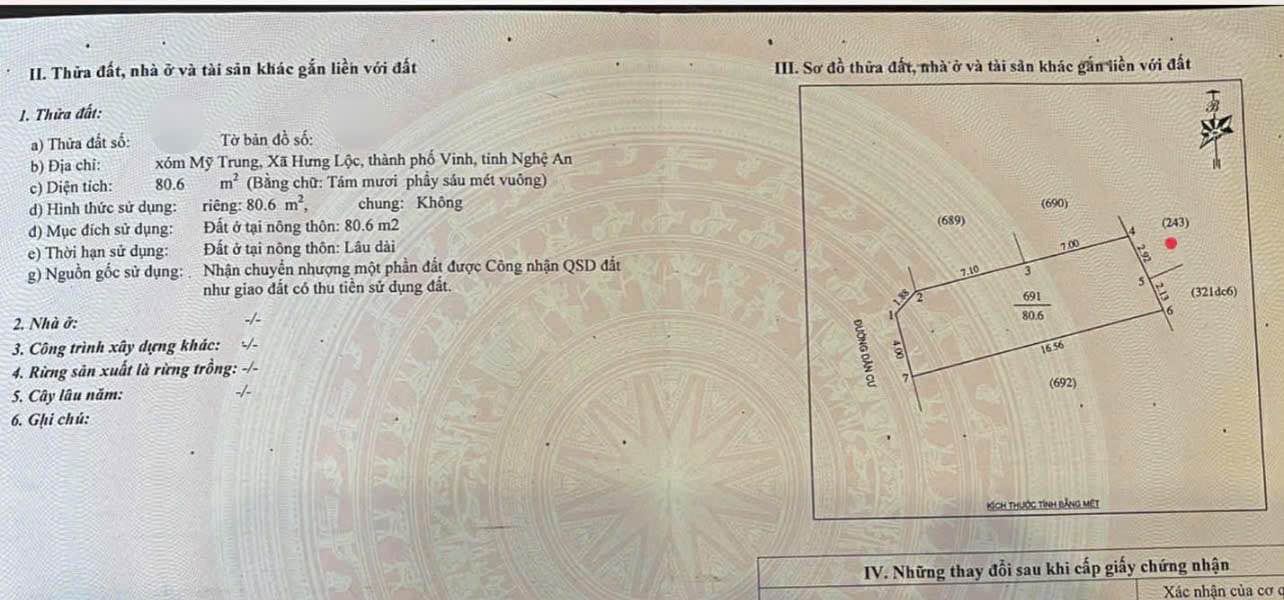 II. Thửa đất, nhà ở và tài sản khác gắn liền với đất
1. Thửa đất:
a) Thửa đất số: Tờ bản đồ số:
b) Địa chỉ: xóm Mỹ Trung, Xã Hưng Lộc, thành phố Vinh, tỉnh Nghệ An
c) Diện tích: 80.6 m² (Bằng chữ: Tám mươi phẩy sáu mét vuông)
d) Hình thức sử dụng: riêng: 80.6 m², chung: Không
đ) Mục đích sử dụng: Đất ở tại nông thôn: 80.6 m2
e) Thời hạn sử dụng: Đất ở tại nông thôn: Lâu dài
g) Nguồn gốc sử dụng: Nhận chuyển nhượng một phần đất được Công nhận QSD đất
như giao đất có thu tiền sử dụng đất.
2. Nhà ở: -/-
3. Công trình xây dựng khác: -/-
4. Rừng sản xuất là rừng trồng: -/-
5. Cây lâu năm: -/-
6. Ghi chú:
III. Sơ đồ thửa đất, nhà ở và tài sản khác gắn liền với đất
B
(690)
(689)
(243)
4
7.00
2.92
7.10
3
5
2.13
(321dc6)
1.88
2
691
80.6
6
1
ĐƯỜNG DÂN CƯ
4.00
16.56
7
(692)
KÍCH THƯỚC TÍNH BẰNG MÉT
IV. Những thay đổi sau khi cấp giấy chứng nhận
Xác nhận của cơ q